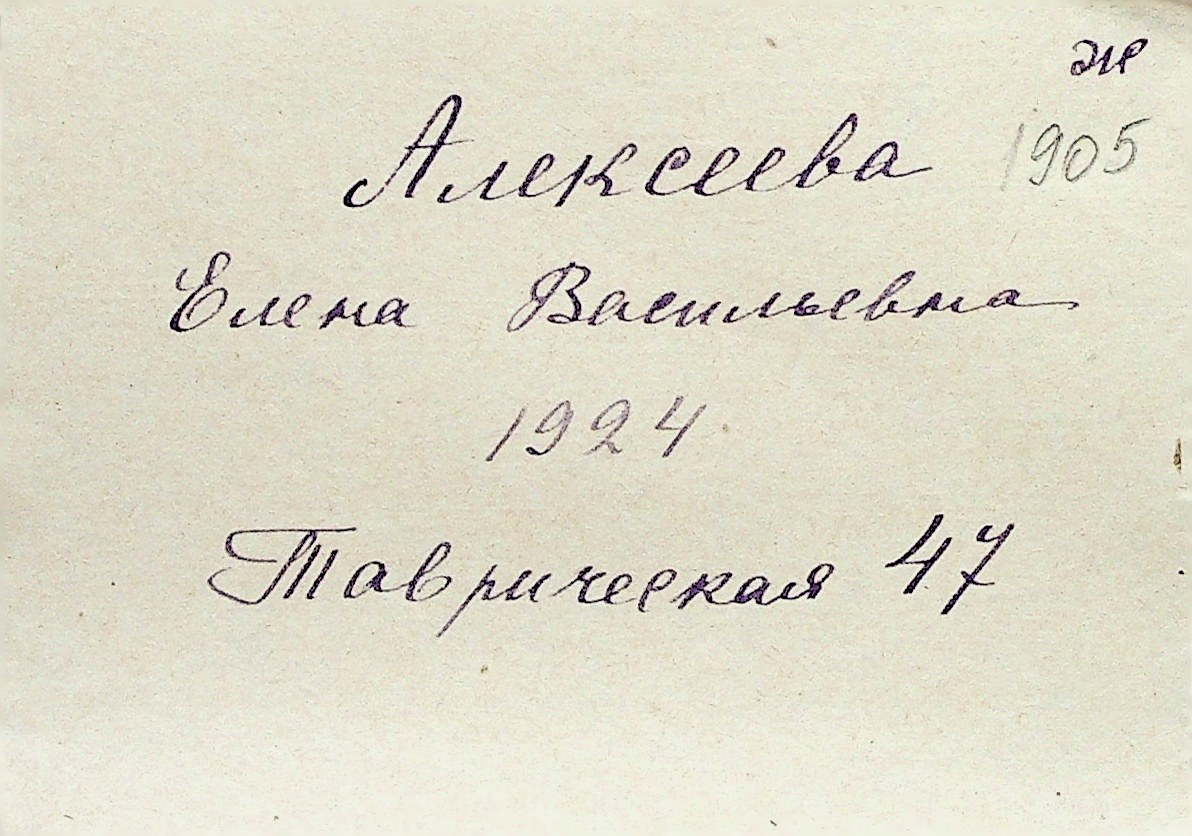 ж
Алексеева 1905
Елена Васильевна
1924
Таврическая 47